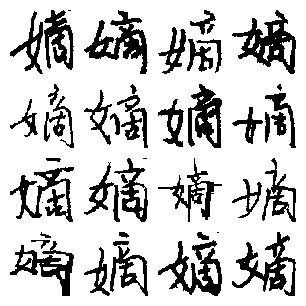 嫡嫡嫡嫡
嫡嫡嫡嫡
嫡嫡嫡嫡
嫡嫡嫡嫡